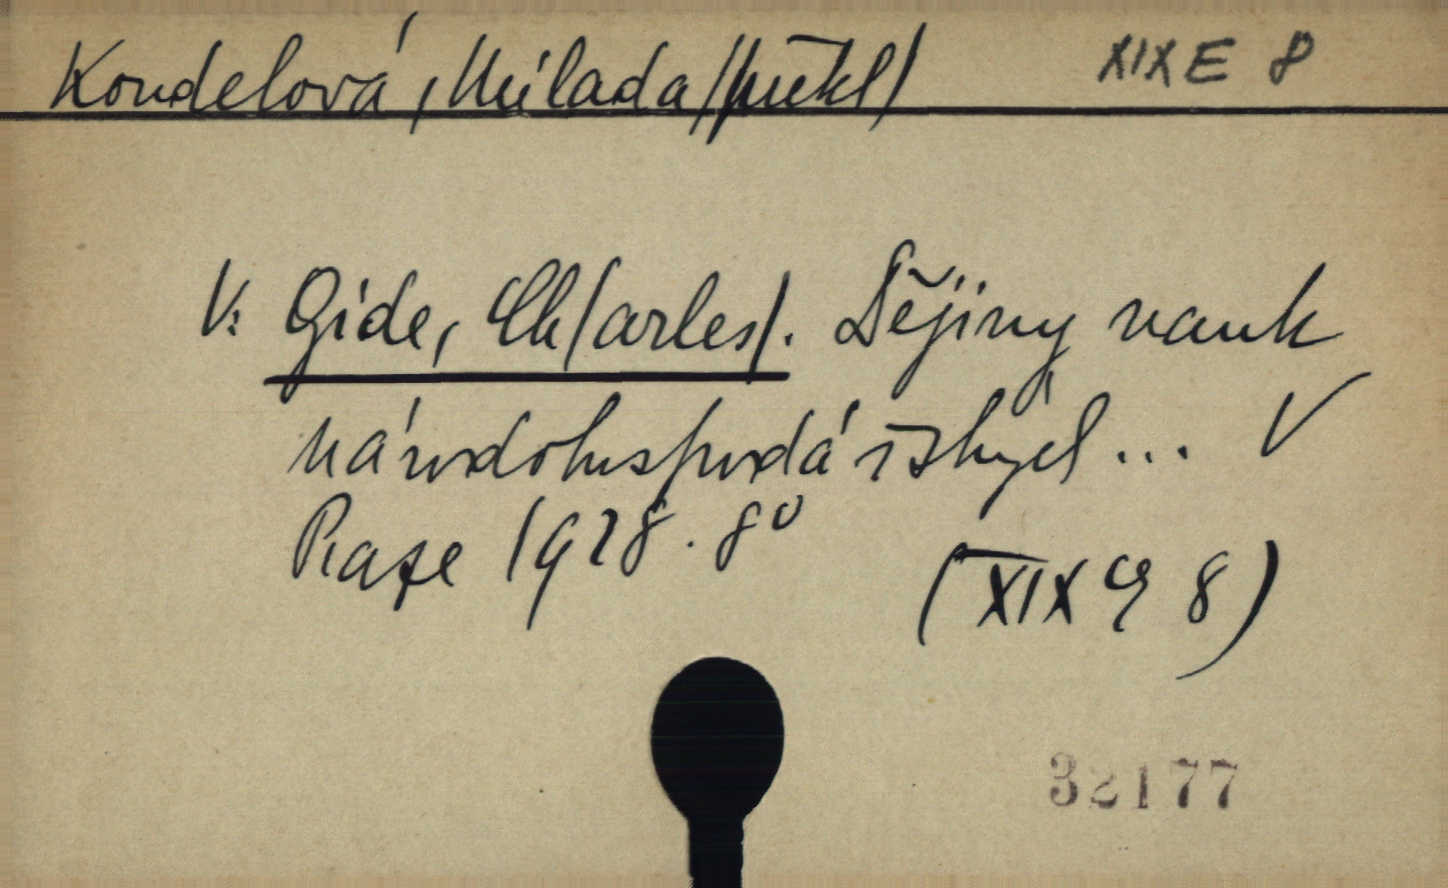 Koudelová, Milada /překl/ XIX E 8
V: Gide, Ch/arles/. Dějiny nauk
národohospodářských ... V
Praze 1928. 8°
(XIX E 8)
32177